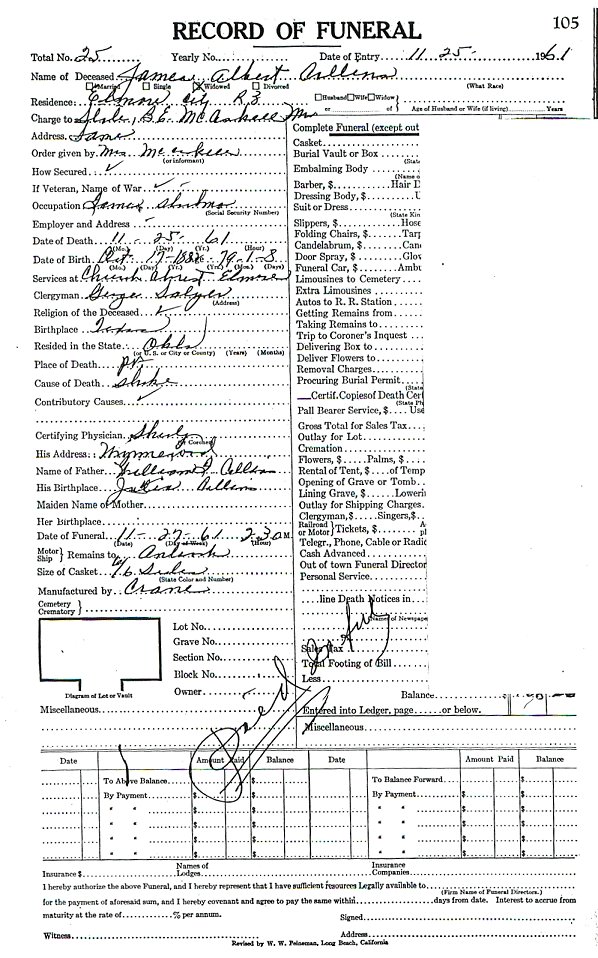 105
RECORD OF FUNERAL
Total No. 25 Yearly No. Date of Entry 11 25 1961
Name of Deceased James Albert
Married Single Widowed Divorced (What Race)
Residence: Elmore City R3 Husband Wife Widow
or of Age of Husband or Wife (if living) Years
Charge to
Address Same
Order given by Mrs
(or informant)
How Secured ✓
If Veteran, Name of War ✓
Occupation
(Social Security Number)
Employer and Address
Date of Death 11 25 61
(Mo.) (Day) (Yr.) (Hour)
Date of Birth Oct 17 1882 79-1-8
(Mo.) (Day) (Yr.) (Yrs.) (Mo.) (Days)
Services at Church Elmore
Clergyman
(Address)
Religion of the Deceased ✓
Birthplace Texas
Resided in the State Okla
(or U. S. or City or County) (Years) (Months)
Place of Death
Cause of Death Stroke
Contributory Causes ✓
Certifying Physician
or Coroner
His Address: Wynnewood
Name of Father William
His Birthplace
Maiden Name of Mother
Her Birthplace
Date of Funeral 11-27-61 2:30 M.
(Date) (Day of Week) (Hour)
Motor Ship Remains to Antioch
Size of Casket
(State Color and Number)
Manufactured by Crane
Cemetery
Crematory
Lot No.
Grave No.
Section No.
Block No.
Owner
Diagram of Lot or Vault
Miscellaneous
Complete Funeral (except out
Casket
Burial Vault or Box
(State
Embalming Body
(Name o
Barber, $ Hair D
Dressing Body, $
Suit or Dress
(State Kin
Slippers, $ Hose
Folding Chairs, $ Tarp
Candelabrum, $ Can
Door Spray, $ Glov
Funeral Car, $ Ambu
Limousines to Cemetery
Extra Limousines
Autos to R. R. Station
Getting Remains from
Taking Remains to
Trip to Coroner's Inquest
Delivering Box to
Deliver Flowers to
Removal Charges
Procuring Burial Permit
(State
Certif. Copies of Death Cer
(State Ph
Pall Bearer Service, $ Use
Gross Total for Sales Tax
Outlay for Lot
Cremation
Flowers, $ Palms, $
Rental of Tent, $ of Temp
Opening of Grave or Tomb
Lining Grave, $ Loweri
Outlay for Shipping Charges
Clergyman, $ Singers, $
Railroad or Motor Tickets, $
Telegr., Phone, Cable or Radio
Cash Advanced
Out of town Funeral Director
Personal Service
line Death Notices in
Name of Newspape
Sales Tax
Total Footing of Bill
Less
Balance
Entered into Ledger, page or below.
Miscellaneous
Paid in full
Date Amount Paid Balance Date Amount Paid Balance
To Above Balance $ To Balance Forward $
By Payment $ $ By Payment $ $
" " $ $ " " $ $
" " $ $ " " $ $
" " $ $ " " $ $
" " $ $ " " $ $
Insurance $ Names of Lodges Insurance Companies
I hereby authorize the above Funeral, and I hereby represent that I have sufficient resources Legally available to
(Firm Name of Funeral Directors.)
for the payment of aforesaid sum, and I hereby covenant and agree to pay the same within days from date. Interest to accrue from
maturity at the rate of % per annum. Signed
Witness Address
Revised by W. W. Feineman, Long Beach, California